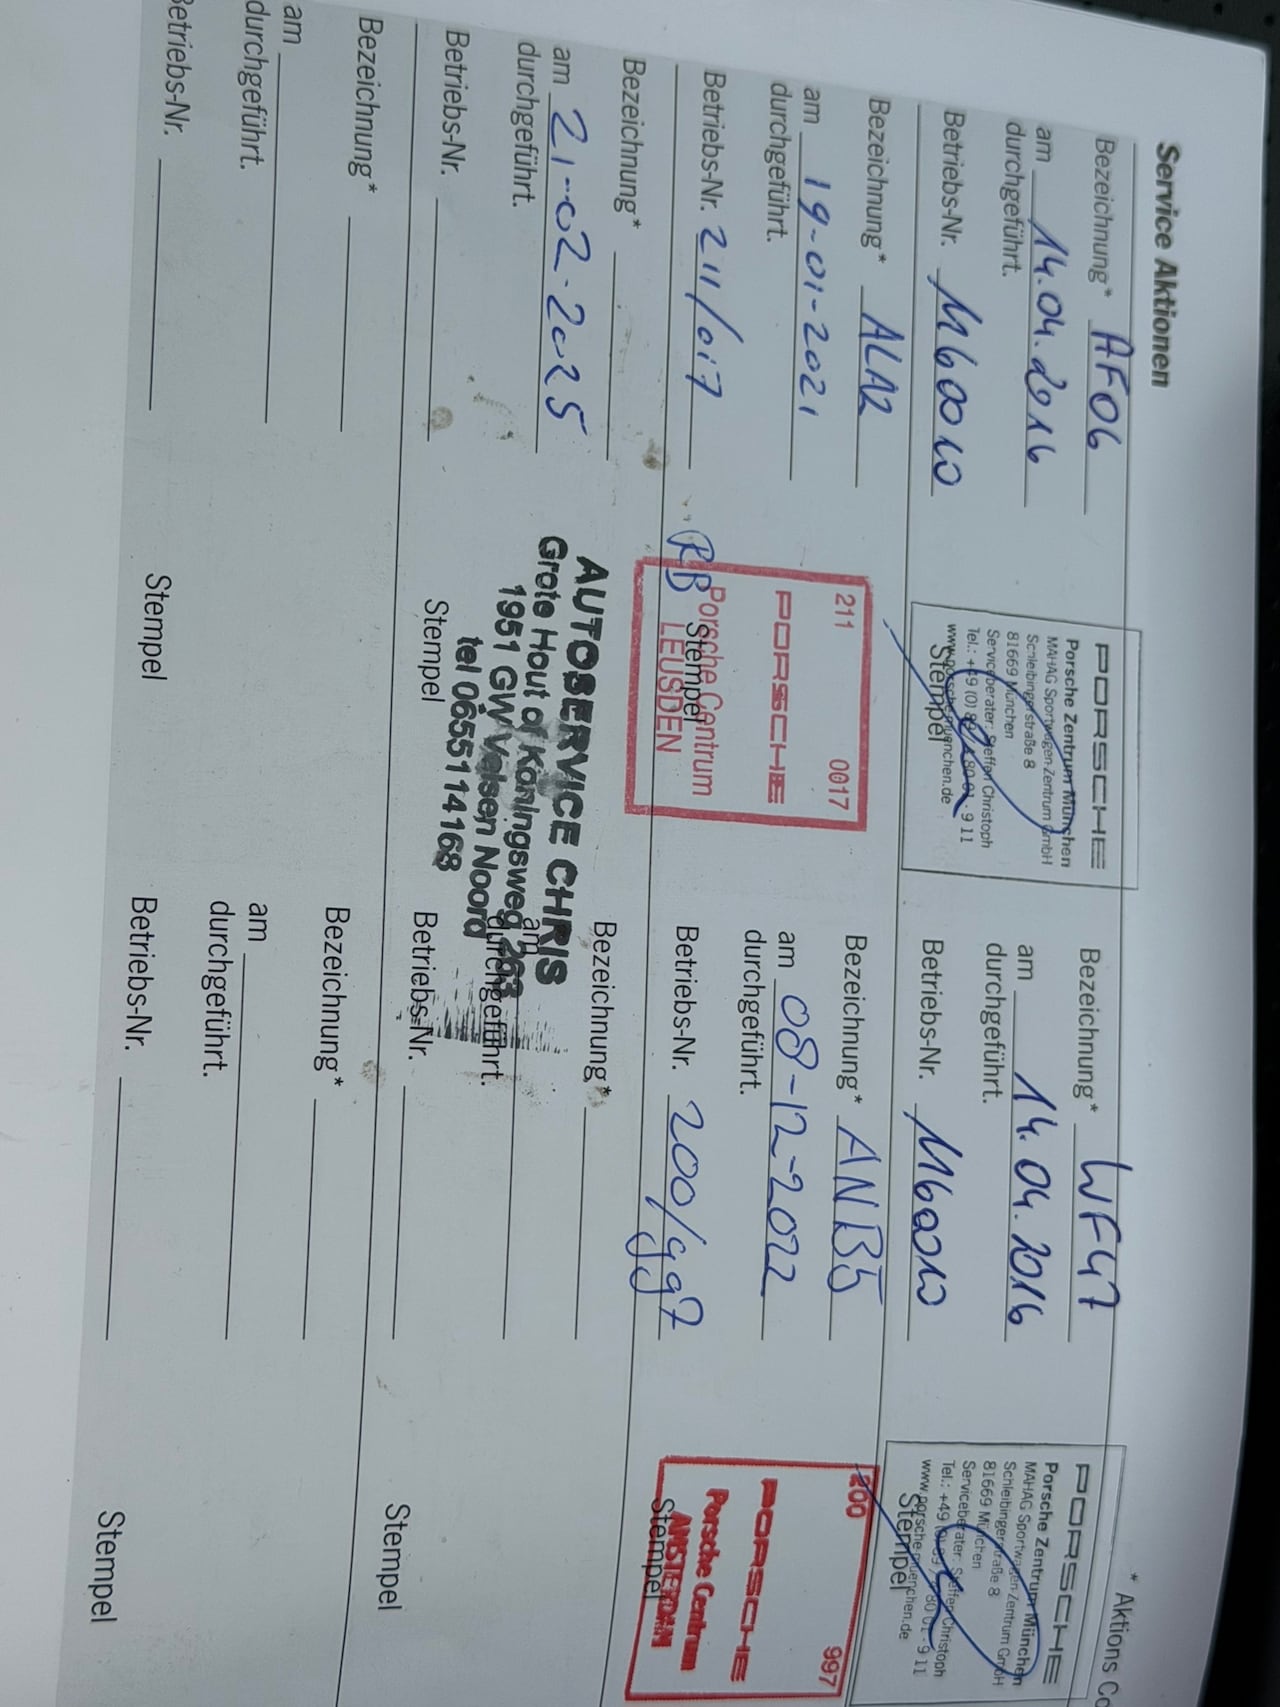 Service Aktionen
* Aktions C
Bezeichnung* AF06
am 14.04.2016
durchgeführt.
Betriebs-Nr. 1160010
PORSCHE
Porsche Zentrum München
MAHAG Sportwagen-Zentrum GmbH
Schleibingerstraße 8
81669 München
Serviceberater: Steffen Christoph
Tel.: +49 (0) 89 / 4 80 01 - 9 11
www.porsche-muenchen.de
Stempel
Bezeichnung* WF47
am 14.04.2016
durchgeführt.
Betriebs-Nr. 1160010
PORSCHE
Porsche Zentrum München
MAHAG Sportwagen-Zentrum GmbH
Schleibingerstraße 8
81669 München
Serviceberater: Steffen Christoph
Tel.: +49 (0) 89 / 4 80 01 - 9 11
www.porsche-muenchen.de
Stempel
Bezeichnung* ALA2
am 19-01-2021
durchgeführt.
Betriebs-Nr. 211/017
211 0017
PORSCHE
Porsche Centrum
LEUSDEN
RB
Stempel
Bezeichnung* ANB5
am 08-12-2022
durchgeführt.
Betriebs-Nr. 200/997
200 997
PORSCHE
Porsche Centrum
AMSTERDAM
Stempel
Bezeichnung*
am 21-02-2025
durchgeführt.
Betriebs-Nr.
AUTOSERVICE CHRIS
Grote Hout of Koningsweg 263
1951 GW Velsen Noord
tel 0655114168
Stempel
Bezeichnung*
am
durchgeführt.
Betriebs-Nr.
Stempel
Bezeichnung*
am
durchgeführt.
Betriebs-Nr.
Stempel
Bezeichnung*
am
durchgeführt.
Betriebs-Nr.
Stempel